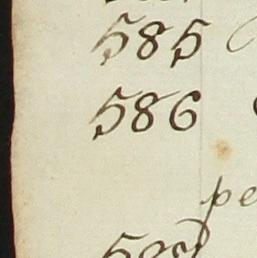 585
586
pe